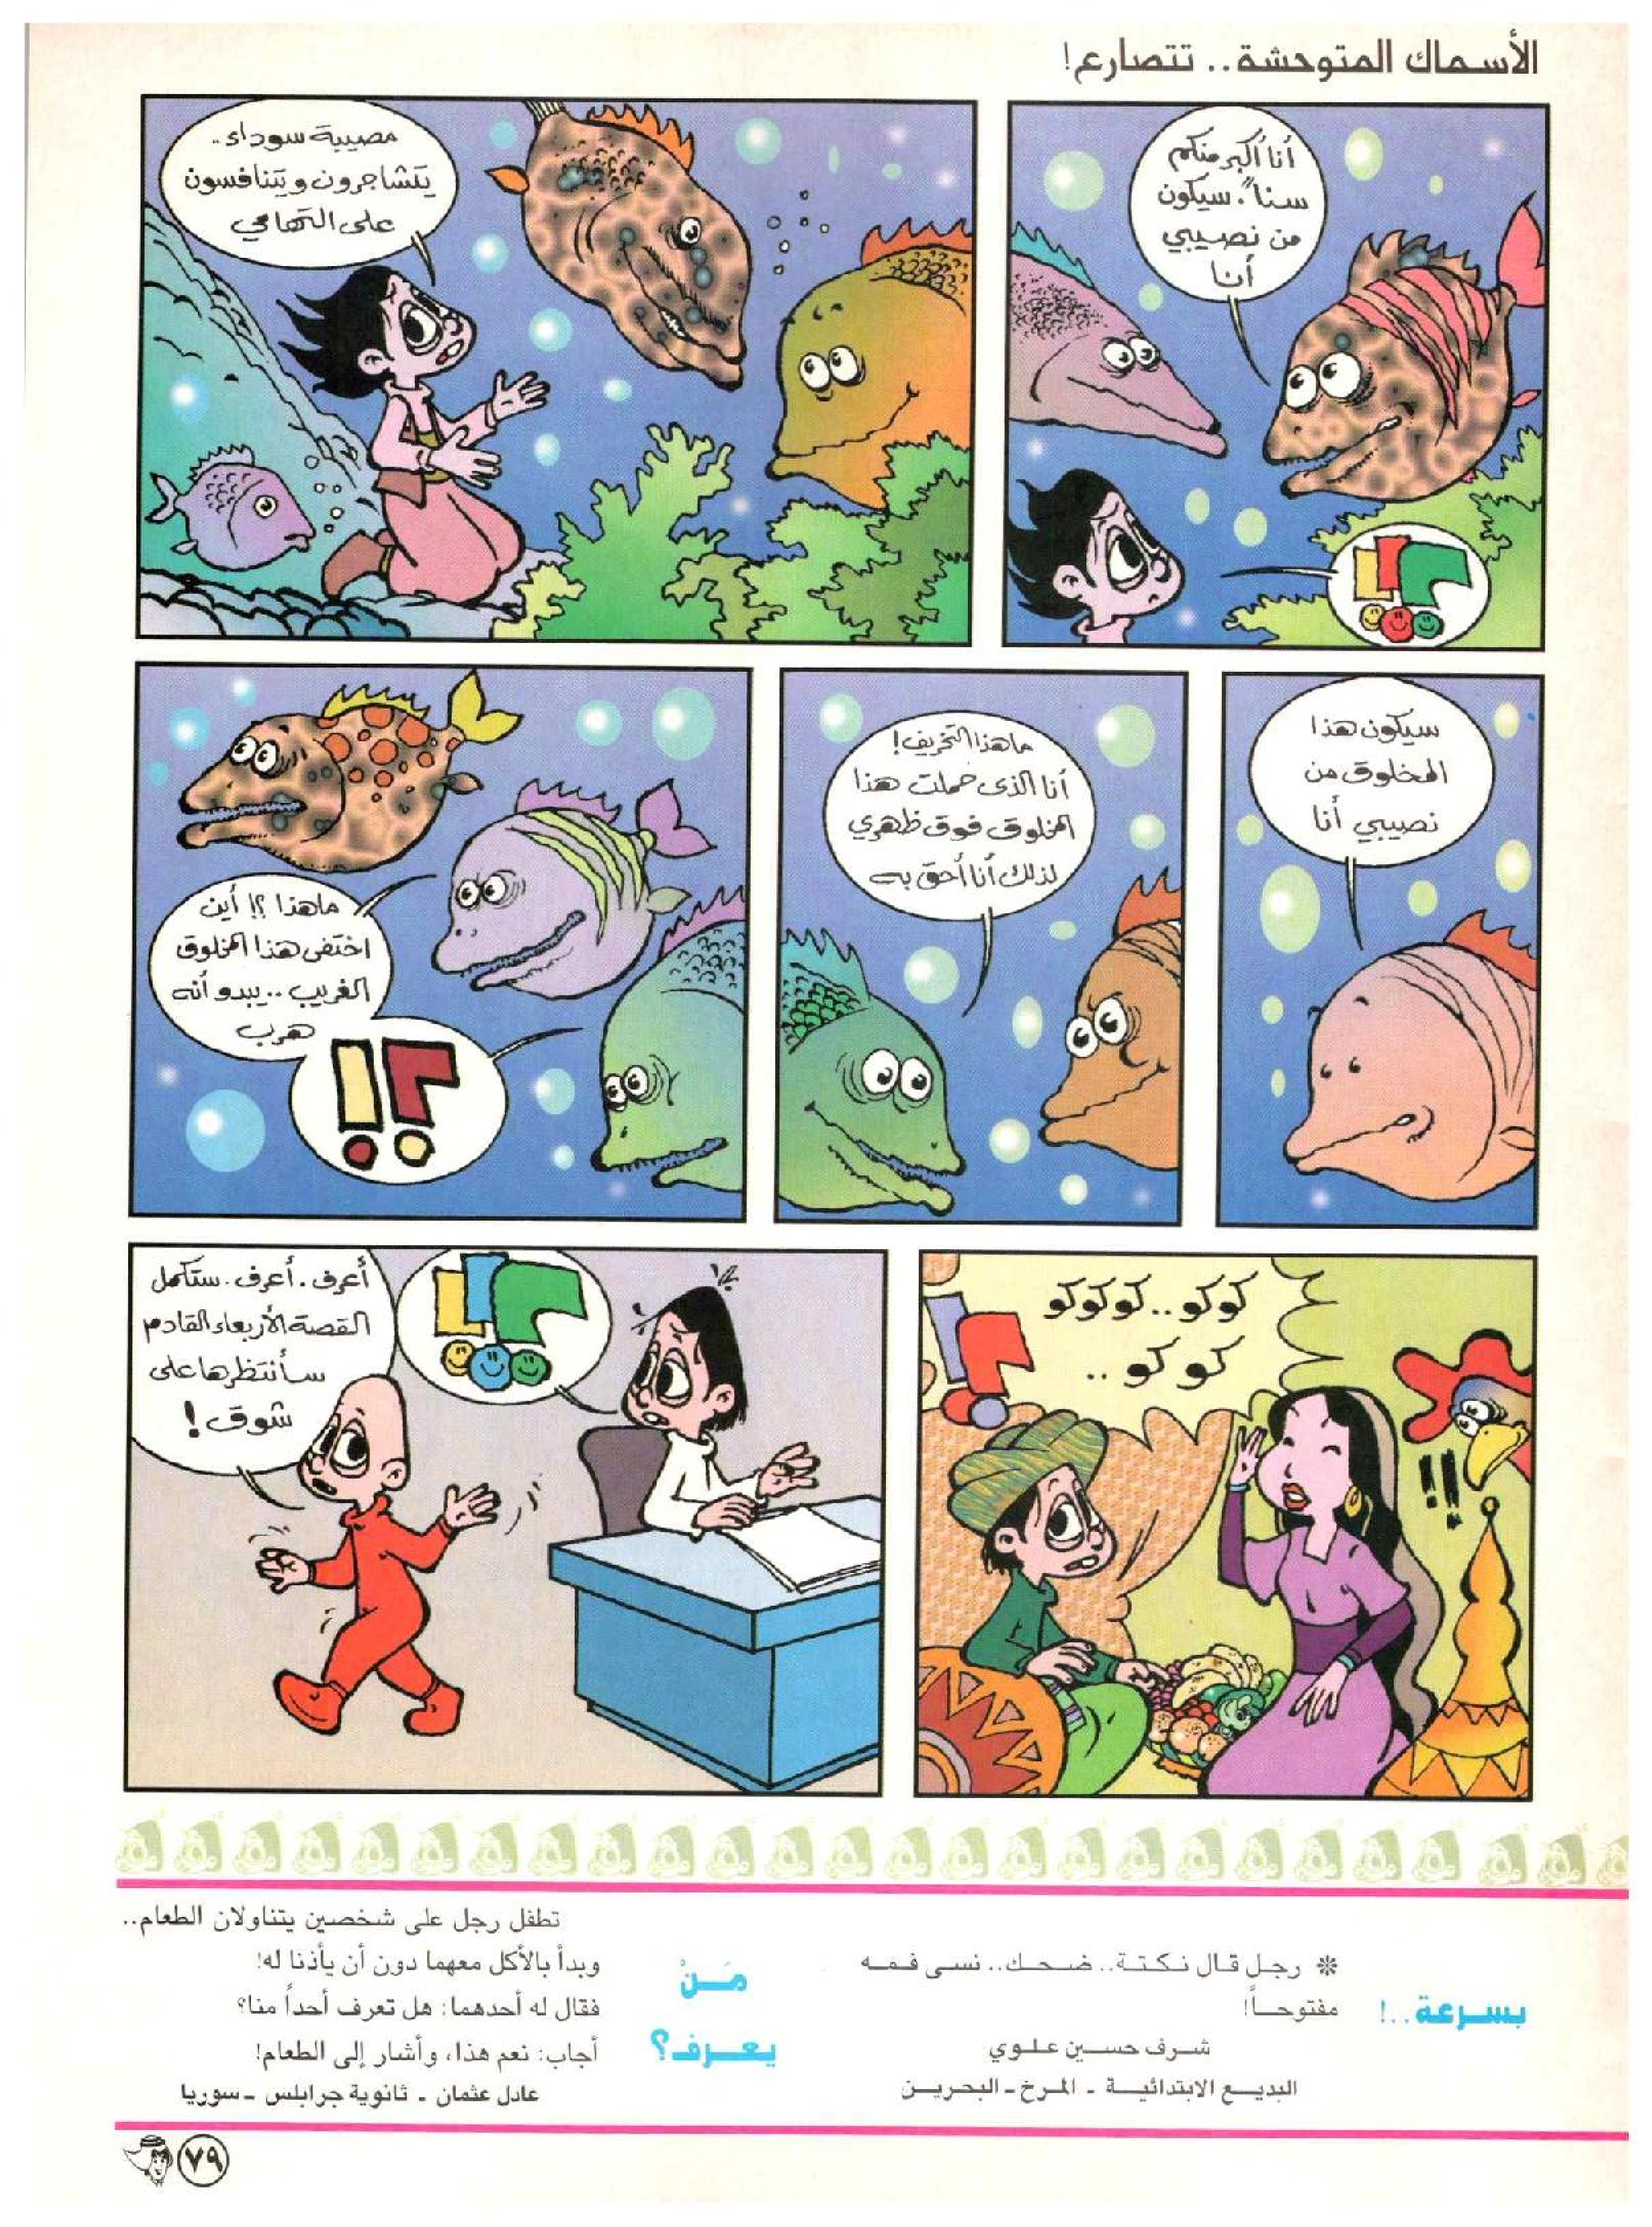 الأسماك المتوحشة.. تتصارع!
أنا أكبر منكم
سناً. سيكون
من نصيبي
أنا
مصيبة سوداء..
يتشاجرون ويتنافسون
على التهامي
سيكون هذا
المخلوق من
نصيبي أنا
ما هذا التخريف!
أنا الذى حملت هذا
المخلوق فوق ظهري
لذلك أنا أحق به
ما هذا ؟! أين
اختفى هذا المخلوق
الغريب.. يبدو أنه
هرب
؟!
كوكو.. كوكوكو
كوكو ..
!!
أعرف. أعرف. ستكمل
القصة الأربعاء القادم
سأنتظرها على
شوق!
بسرعة..!
* رجل قال نكتة.. ضحك.. نسى فمه
مفتوحاً!
شرف حسين علوي
البديع الابتدائية - المرخ - البحرين
مَنْ
يعرف؟
تطفل رجل على شخصين يتناولان الطعام..
وبدأ بالأكل معهما دون أن يأذنا له!
فقال له أحدهما: هل تعرف أحداً منا؟
أجاب: نعم هذا، وأشار إلى الطعام!
عادل عثمان - ثانوية جرابلس - سوريا
٧٩